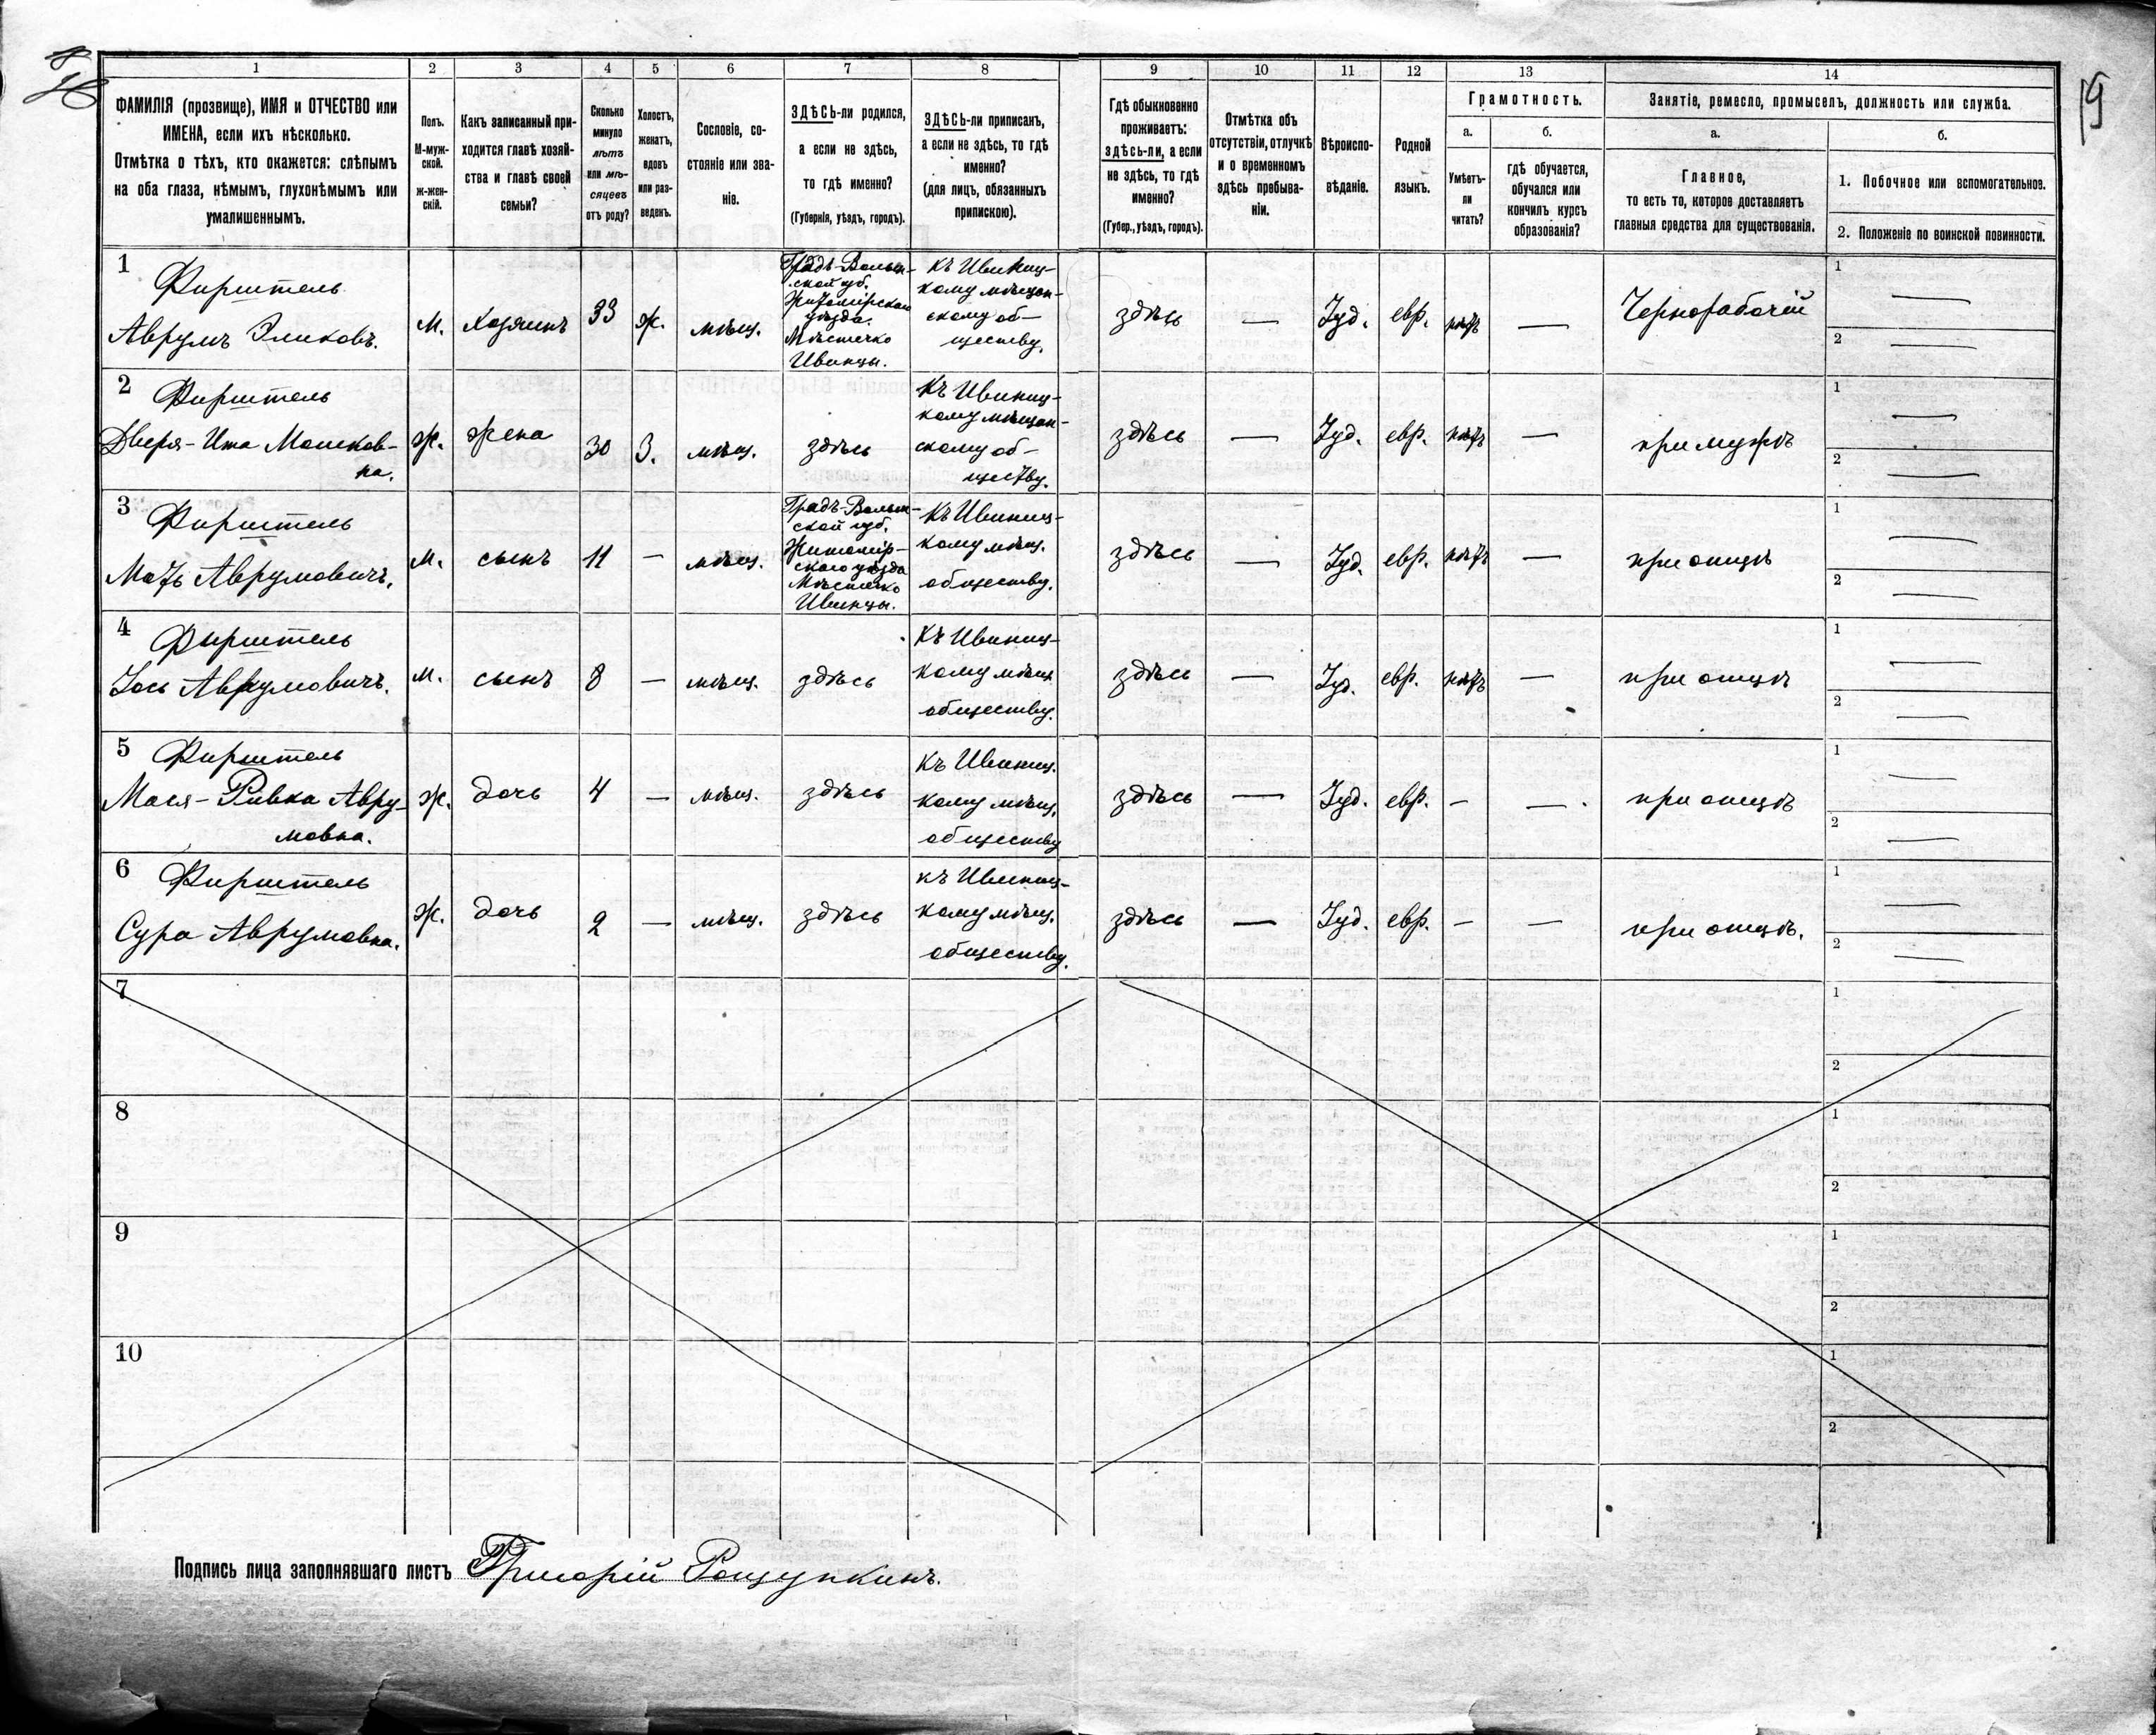 1
2
3
4
5
6
7
8
9
10
11
12
13
14
ФАМИЛІЯ (прозвище), ИМЯ и ОТЧЕСТВО или
ИМЕНА, если ихъ нѣсколько.
Отмѣтка о тѣхъ, кто окажется: слѣпымъ
на оба глаза, нѣмымъ, глухонѣмымъ или
умалишеннымъ.
Полъ.
М-муж-
ской.
ж-жен-
скій.
Какъ записанный при-
ходится главѣ хозяй-
ства и главѣ своей
семьи?
Сколько
минуло
лѣтъ
или мѣ-
сяцевъ
отъ роду?
Холостъ,
женатъ,
вдовъ
или раз-
веденъ.
Сословіе, со-
стояніе или зва-
ніе.
ЗДѢСЬ-ли родился,
а если не здѣсь,
то гдѣ именно?
(Губернія, уѣздъ, городъ).
ЗДѢСЬ-ли приписанъ,
а если не здѣсь, то гдѣ
именно?
(для лицъ, обязанныхъ
припискою).
Гдѣ обыкновенно
проживаетъ:
здѣсь-ли, а если
не здѣсь, то гдѣ
именно?
(Губер., уѣздъ, городъ).
Отмѣтка объ
отсутствіи, отлучкѣ
и о временномъ
здѣсь пребыва-
ніи.
Вѣроиспо-
вѣданіе.
Родной
языкъ.
Грамотность.
а.
Умѣетъ-
ли
читать?
б.
гдѣ обучается,
обучался или
кончилъ курсъ
образованія?
Занятіе, ремесло, промыселъ, должность или служба.
а.
Главное,
то есть то, которое доставляетъ
главныя средства для существованія.
б.
1. Побочное или вспомогательное.
2. Положеніе по воинской повинности.
1
Фирштель
Аврумъ Эликовъ.
М.
Хозяинъ
33
ж.
мѣщ.
Градъ-Волын-
ской губ.
Житомірскаго
уѣзда.
Мѣстечко
Ивницы.
Къ Ивниц-
кому мѣщан-
скому об-
ществу.
здѣсь
—
Іуд.
евр.
нѣтъ
—
Чернорабочій
1 —
2 —
2
Фирштель
Двейря-Ита Мошков-
на.
Ж.
жена
30
З.
мѣщ.
здѣсь
Къ Ивниц-
кому мѣщан-
скому об-
ществу.
здѣсь
—
Іуд.
евр.
нѣтъ
—
при мужѣ
1 —
2 —
3
Фирштель
Мотъ Аврумовичъ.
М.
сынъ
11
—
мѣщ.
Градъ-Волын-
ской губ.
Житомір-
скаго уѣзда
Мѣстечко
Ивницы.
Къ Ивниц-
кому мѣщ.
обществу.
здѣсь
—
Іуд.
евр.
нѣтъ
—
при отцѣ
1 —
2 —
4
Фирштель
Іось Аврумовичъ.
М.
сынъ
8
—
мѣщ.
здѣсь
Къ Ивниц-
кому мѣщ.
обществу.
здѣсь
—
Іуд.
евр.
нѣтъ
—
при отцѣ
1 —
2 —
5
Фирштель
Мася-Ривка Авру-
мовна.
Ж.
дочь
4
—
мѣщ.
здѣсь
Къ Ивниц.
кому мѣщ.
обществу
здѣсь
—
Іуд.
евр.
—
—
при отцѣ
1 —
2 —
6
Фирштель
Сура Аврумовна.
Ж.
дочь
2
—
мѣщ.
здѣсь
къ Ивниц-
кому мѣщ.
обществу.
здѣсь
—
Іуд.
евр.
—
—
при отцѣ.
1 —
2 —
7
1
2
8
1
2
9
1
2
10
1
2
Подпись лица заполнявшаго листъ Григорій Рощупкинъ.